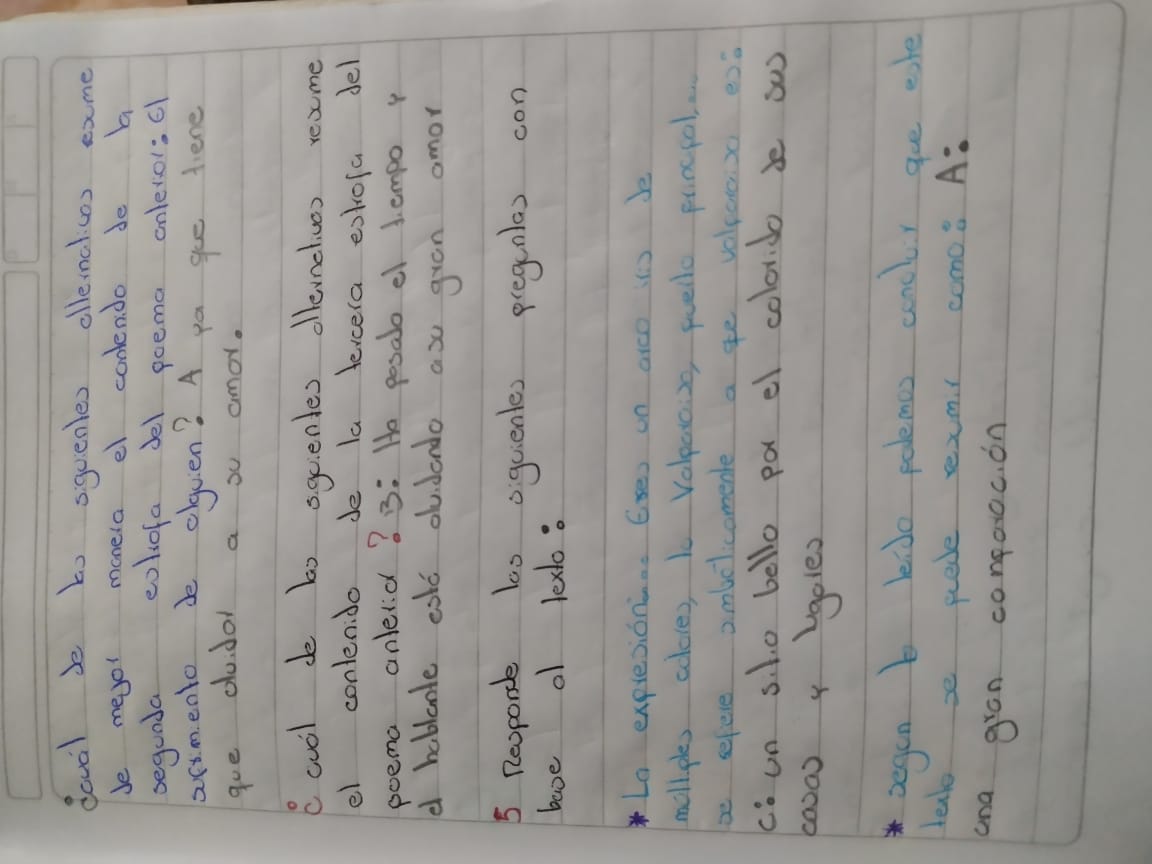 ¿cuál de las siguientes alternativas resume
de mejor manera el contenido de la
segunda estrofa del poema anterior: El
sufrimiento de alguien? A ya que tiene
que olvidar a su amor.
¿ cuál de las siguientes alternativas resume
el contenido de la tercera estrofa del
poema anterior? B: Ha pasado el tiempo y
el hablante está olvidando a su gran amor
5 Responde las siguientes preguntas con
base al texto:
* La expresión.... Eres un arco iris de
múltiples colores, lo Valparaiso, puerto principal,...
se refiere simbólicamente a que valparaiso es:
C: un sitio bello por el colorido de sus
casas y lugares
* segun lo leído podemos concluir que este
texto se puede resumir como: A:
una gran comparación